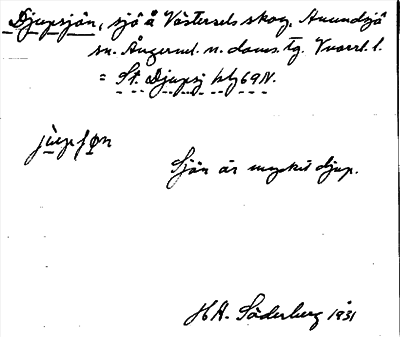 Djupsjön, sjö å Västersels skog, Anundsjö
sn. Ångerml. n. doms. tg. V:norrl. l.
= St. Djupsj blg 69N.
Sjön är mycket djup.
HA. Söderberg 1931